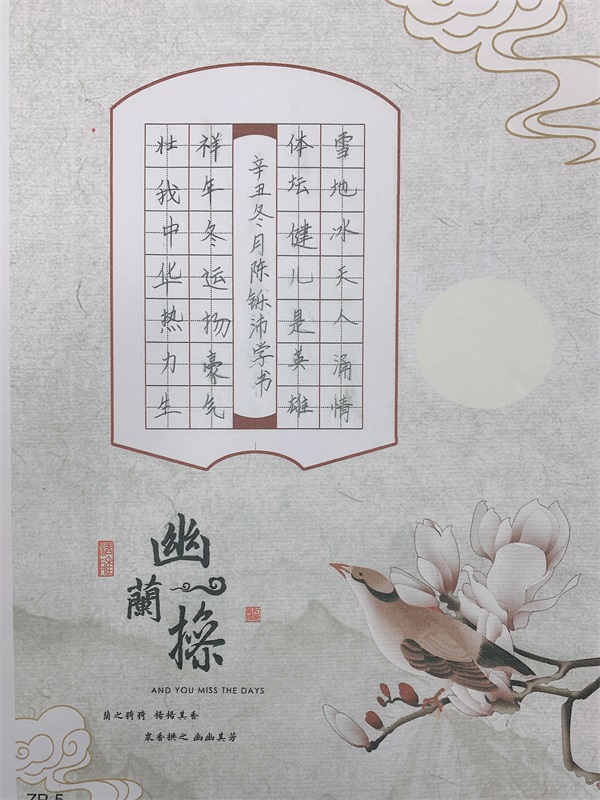 雪地冰天人涌情
体坛健儿是英雄
辛丑冬月陈铄沛学书
祥年冬运扬豪气
壮我中华热力生
幽蘭操
AND YOU MISS THE DAYS
蘭之猗猗 扬扬其香
眾香拱之 幽幽其芳
ZP-5